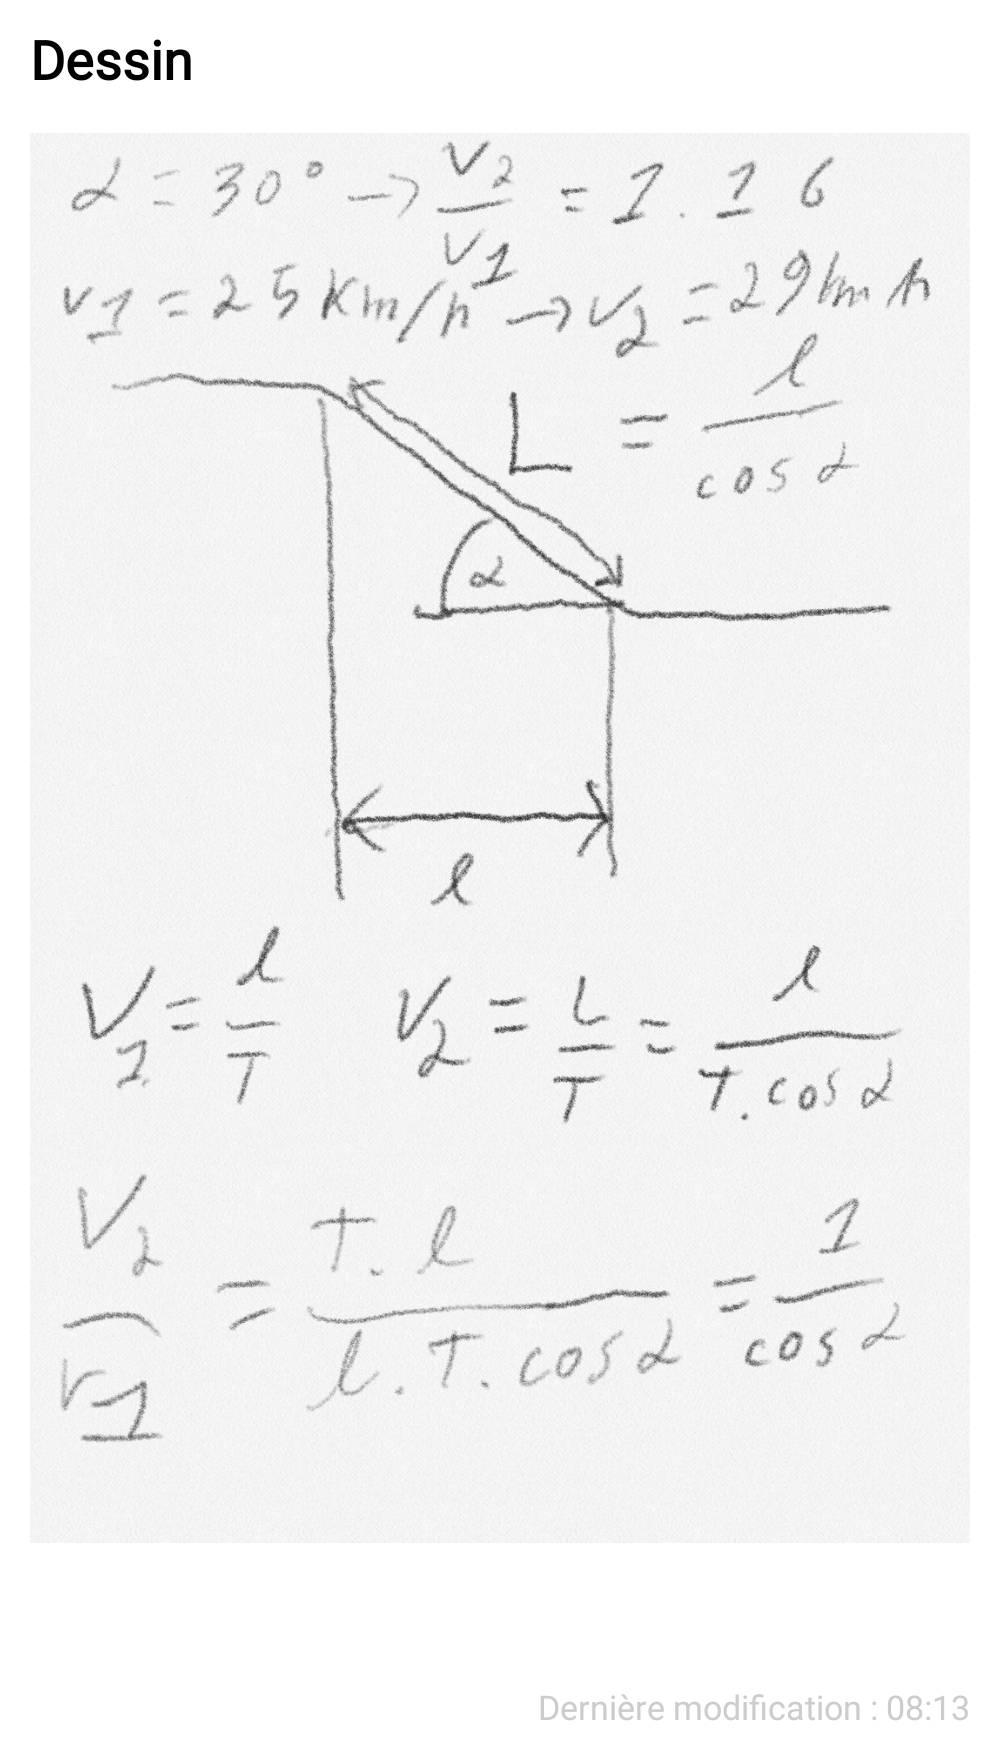 Dessin
α = 30° → V2/V1 = 1.16
V1 = 25 Km/h → V2 = 29 km/h
L = l/cos α
α
l
V1 = l/T V2 = L/T = l/T.cos α
V2/V1 = T.l/l.T.cos α = 1/cos α
Dernière modification : 08:13